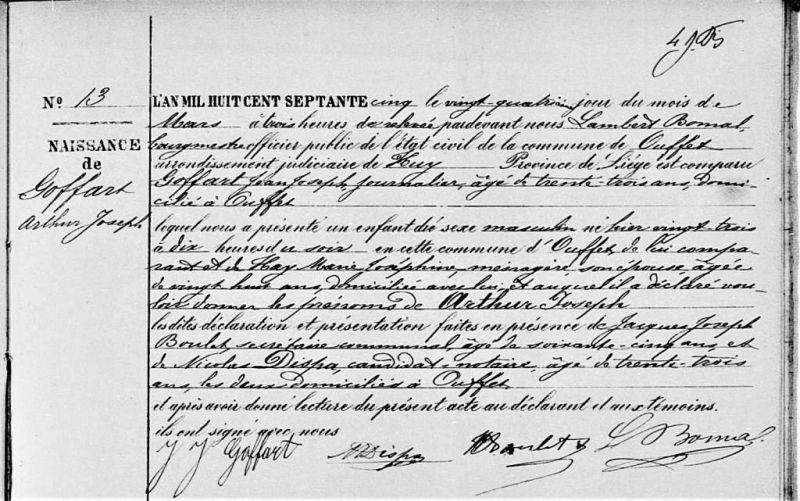 Nº 13
NAISSANCE
de
Goffart
Arthur Joseph
L'AN MIL HUIT CENT SEPTANTE cinq le vingt-quatrième jour du mois de
Mars à trois heures de relevée pardevant nous Lambert Bomal,
bourgmestre officier public de l'état civil de la commune de Ouffet
arrondissement judiciaire de Huy Province de Liége est comparu
Goffart Jean Joseph, journalier, âgé de trente-trois ans, domi-
cilié à Ouffet
lequel nous a présenté un enfant du sexe masculin né hier vingt-trois
à dix heures du soir en cette commune d'Ouffet, de lui compa-
rant et de Hay Marie Joséphine, ménagère, son épouse, âgée
de vingt ans, domicilié avec lui, et auquel il a déclaré vou-
loir donner les prénoms de Arthur Joseph
les dites déclaration et présentation faites en présence de Jacques Joseph
Boulet, secrétaire communal, âgé de soixante-cinq ans, et
de Nicolas Dispa, candidat-notaire, âgé de trente-trois
ans, les deux domiciliés à Ouffet
et après avoir donné lecture du présent acte au déclarant et aux témoins.
ils ont signé avec nous
J J Goffart N Dispa Boulet L Bomal